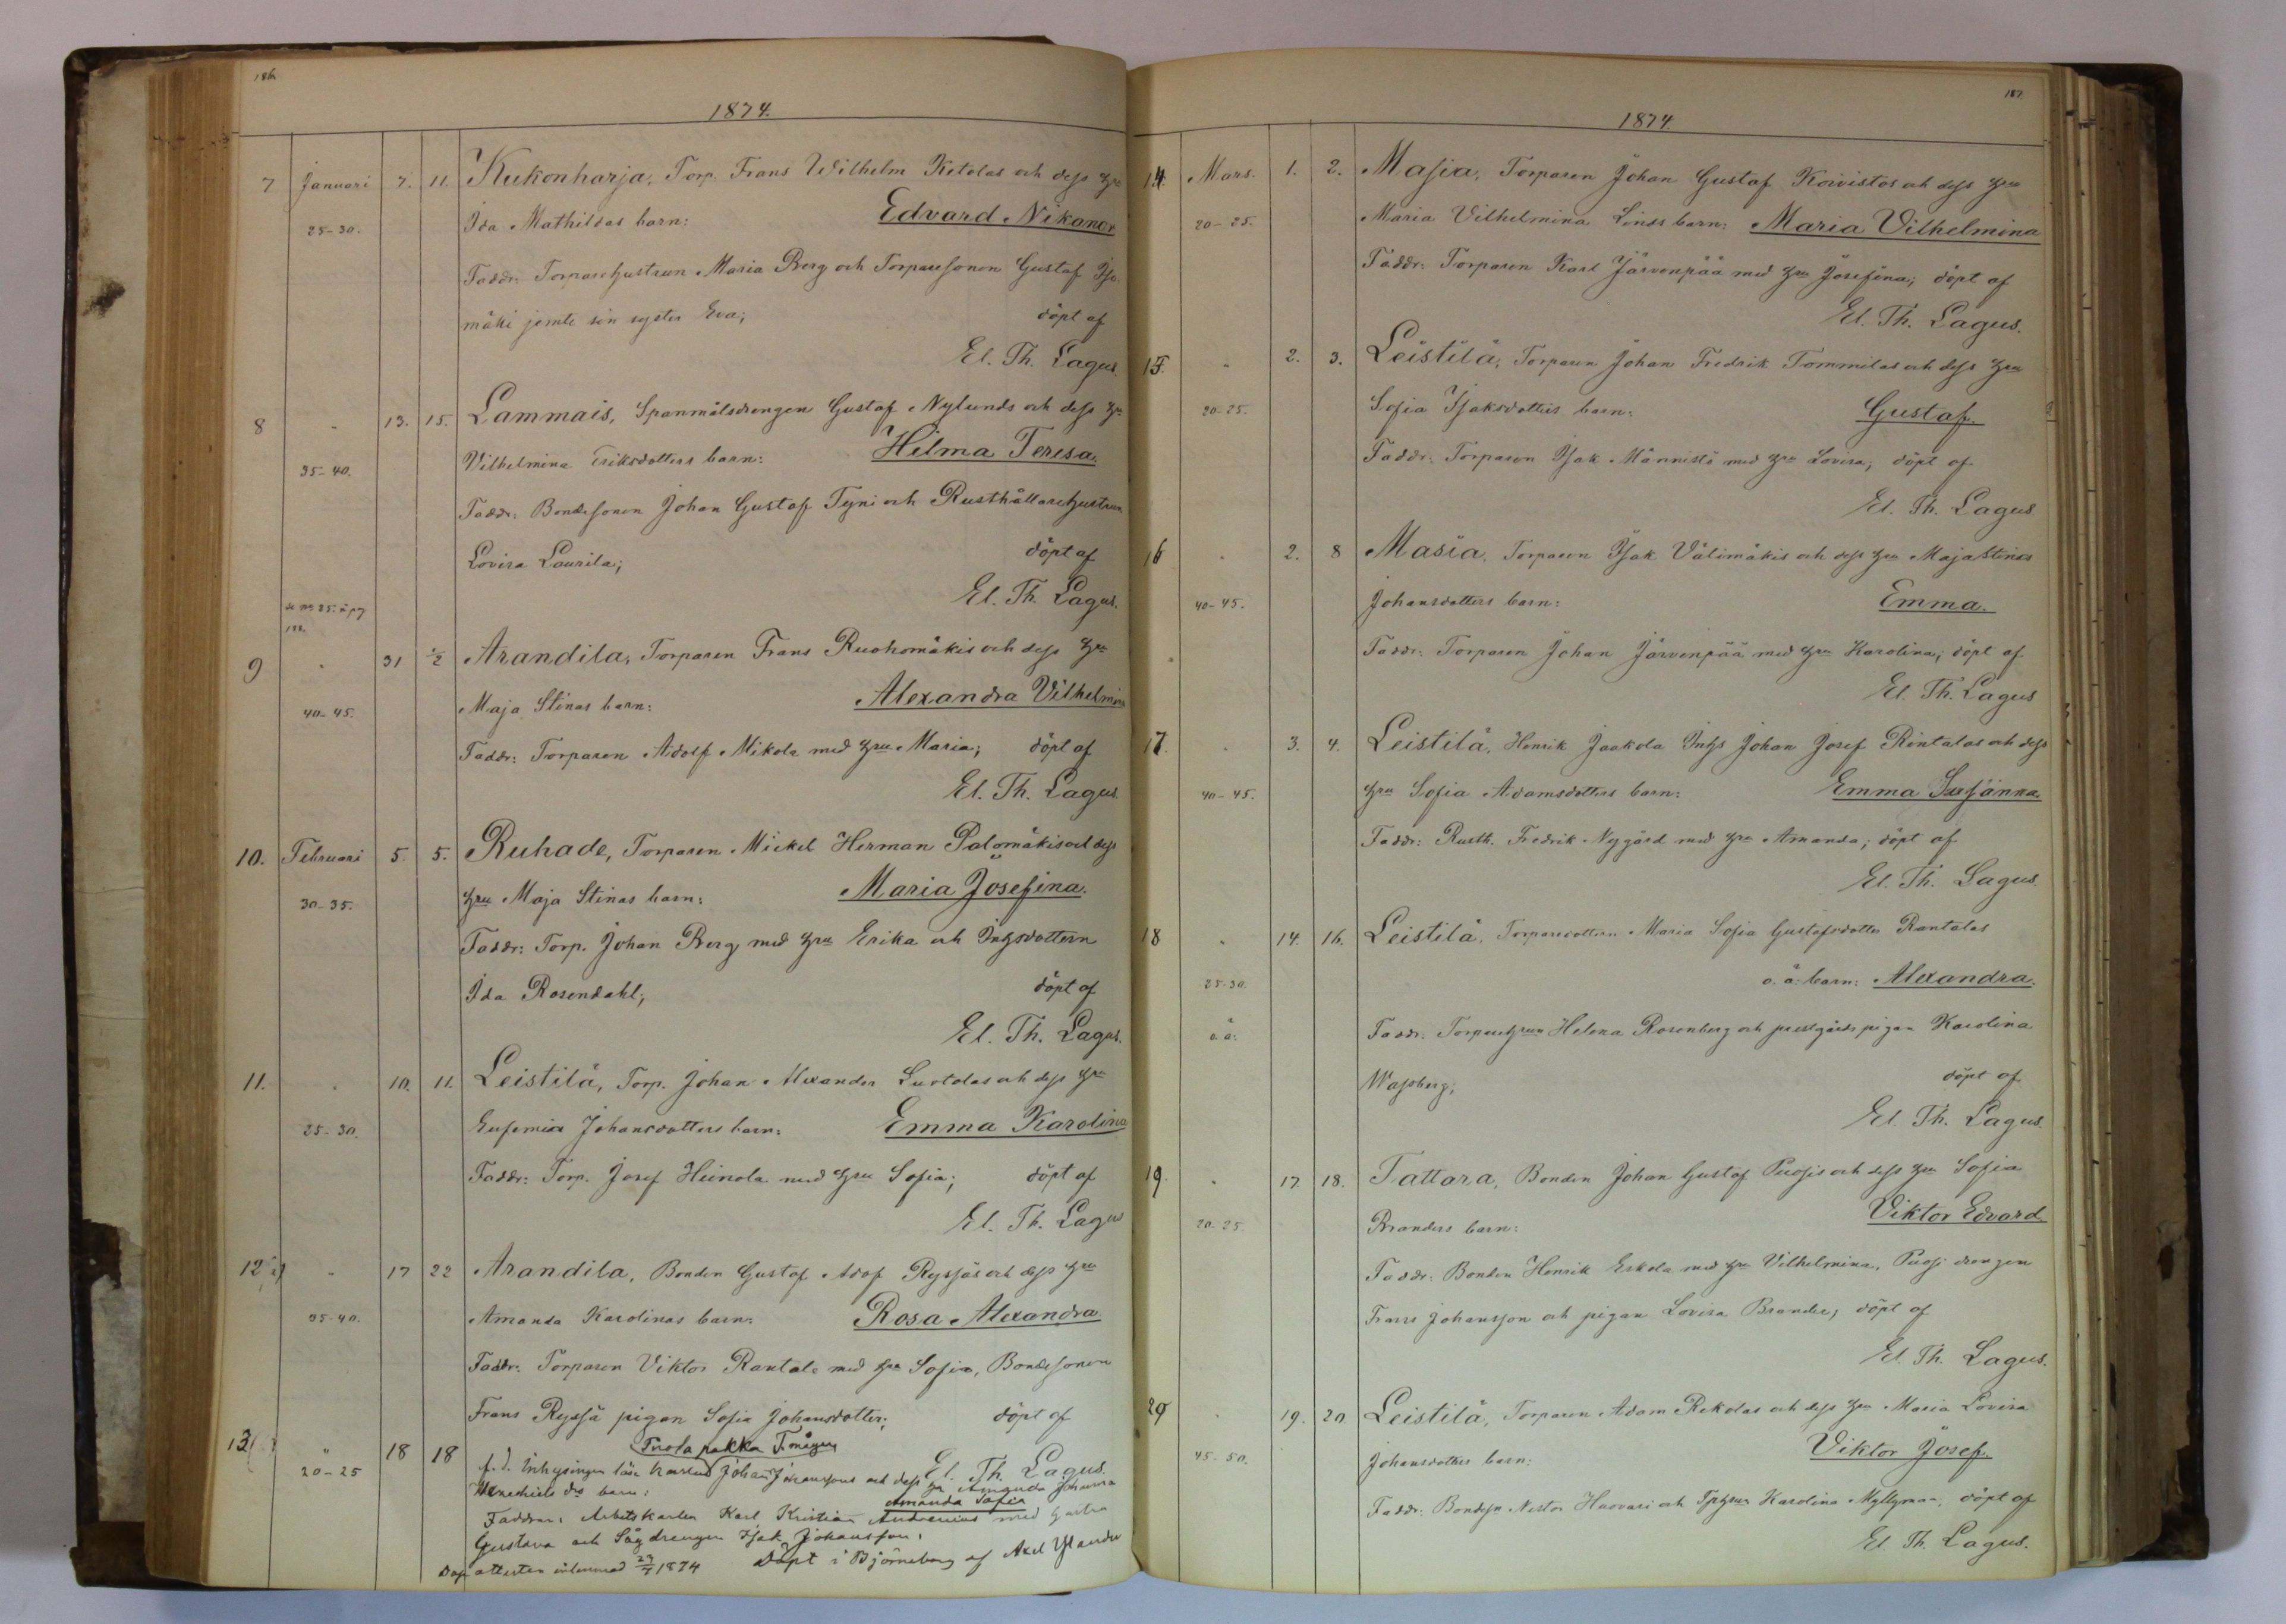 186.
1874.
7 Januari 7. 11. Kukonharja, Torp. Frans Wilhelm Ketolas och dess hu
25-30. Ida Mathildas barn: Edvard Nikanor
Faddr: Torparehustrun Maria Berg och Torparesonen Gustaf Iso-
mäki jemte sin syster Eva; döpt af
El. Th. Lagus.
8 " 13. 15. Lammais, Spanmålsdrengen Gustaf Nylunds och dess hu
35-40. Vilhelmina Eriksdotters barn: Hilma Teresa.
Faddr: Bondesonen Johan Gustaf Tyni och Rusthållarehustrun
Lovisa Laurila; döpt af
El. Th. Lagus.
9 " 31 1/2 Arandila, Torparen Frans Ruohomäkis och dess hu
40-45. Maja Stinas barn: Alexandra Vilhelmina
Faddr: Torparen Adolf Mikola med hru Maria; döpt af
El. Th. Lagus.
10. Februari 5. 5. Ruhade, Torparen Mickel Herman Palomäkis och dess
30-35. hru Maja Stinas barn: Maria Josefina.
Faddr: Torp. Johan Berg med hru Erika och Inhsdottern
Ida Rosendahl; döpt af
El. Th. Lagus.
11. " 10. 11. Leistilä, Torp. Johan Alexander Luotolas och dess hu
25-30. Eufemia Johansdotters barn: Emma Karolina
Faddr: Torp. Josef Heinola med hru Sofia; döpt af
El. Th. Lagus
12 " 17 22 Arandila, Bonden Gustaf Adof Ryssjäs och dess hru
35-40. Amanda Karolinas barn: Rosa Alexandra.
Faddr: Torparen Viktor Rantala med hru Sofia, Bondesonen
Frans Ryssjä pigan Sofia Johansdotter; döpt af
El. Th. Lagus.
13 " 18 18 f.d. Inhysingen Johan Johanssons och dess hu Amanda Johanna
20-25 barn: Amanda Sofia
Faddrar: Arbetskarlen Karl Kristian Andrenius med hustru
Gustava och Sågdrengen Isak Johansson.
Döpt i Björneborg af Axel Ylander
attesten inlemnad 1874
187.
1874.
14. Mars. 1. 2. Masia, Torparen Johan Gustaf Koivistos och dess hru
20-25. Maria Vilhelmina Linds barn: Maria Vilhelmina
Faddr: Torparen Karl Järvenpää med hru Josefina; döpt af
El. Th. Lagus.
15. " 2. 3. Leistilä, Torparen Johan Fredrik Tommilas och dess hru
20-25. Sofia Isaksdotters barn: Gustaf.
Faddr: Torparen Isak Männistö med hru Lovisa; döpt af
El. Th. Lagus
16 " 2. 8 Masia, Torparen Isak Välimäkis och dess hru Maja Stinas
40-45. Johansdotters barn: Emma.
Faddr: Torparen Johan Järvenpää med hru Karolina; döpt af
El. Th. Lagus
17. " 3. 4. Leistilä, Henrik Jaakola Inhs Johan Josef Rintalas och dess
40-45. hru Sofia Adamsdotters barn: Emma Susanna.
Faddr: Rusth. Fredrik Nygård med hru Amanda; döpt af
El. Th. Lagus.
18 " 14. 16. Leistilä, Torparedottern Maria Sofia Gustafsdotter Rantalas
25-30. o. ä. barn: Alexandra.
o. ä. Faddr: Torparehrun Helena Rosenberg och prestgårds pigan Karolina
Wassberg; döpt af
El. Th. Lagus.
19. " 17. 18. Tattara, Bonden Johan Gustaf Puosis och dess hru Sofia
20-25. Branders barn: Viktor Edvard
Faddr: Bonden Henrik Eskola med hru Vilhelmina, Puosi drengen
Frans Johansson och pigan Lovisa Brander; döpt af
El. Th. Lagus.
20 " 19. 20 Leistilä, Torparen Adam Rekolas och dess hru Maria Lovisa
45-50. Johansdotters barn: Viktor Josef.
Faddr: Bondesn Nestor Huovari och Tphrun Karolina Myllymaa; döpt af
El. Th. Lagus.